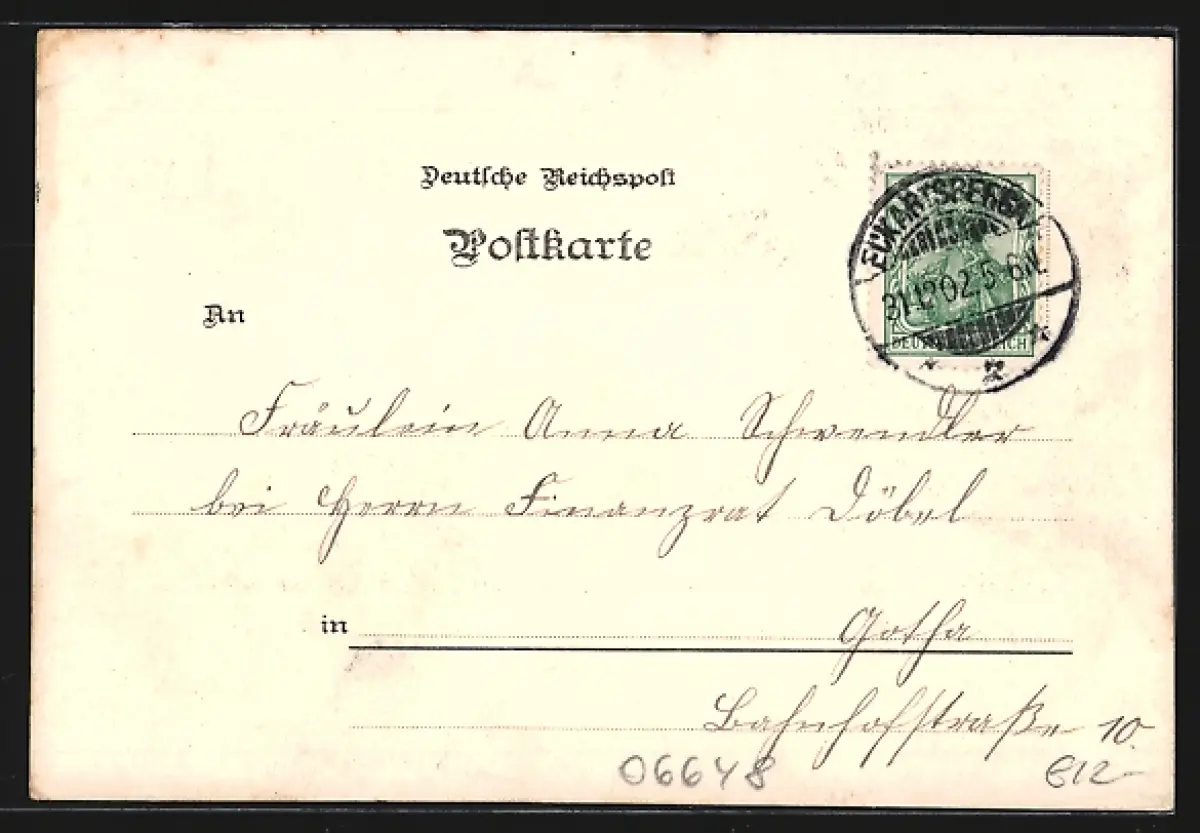 Deutsche Reichspost
Postkarte
An
ECKARTSBERGA
31.12.02.5-6N.
DEUTSCHES REICH
Fräulein Anna Schwendler
bei Herrn Finanzrat Döbel
in Gotha
Bahnhofstraße 10.
06648